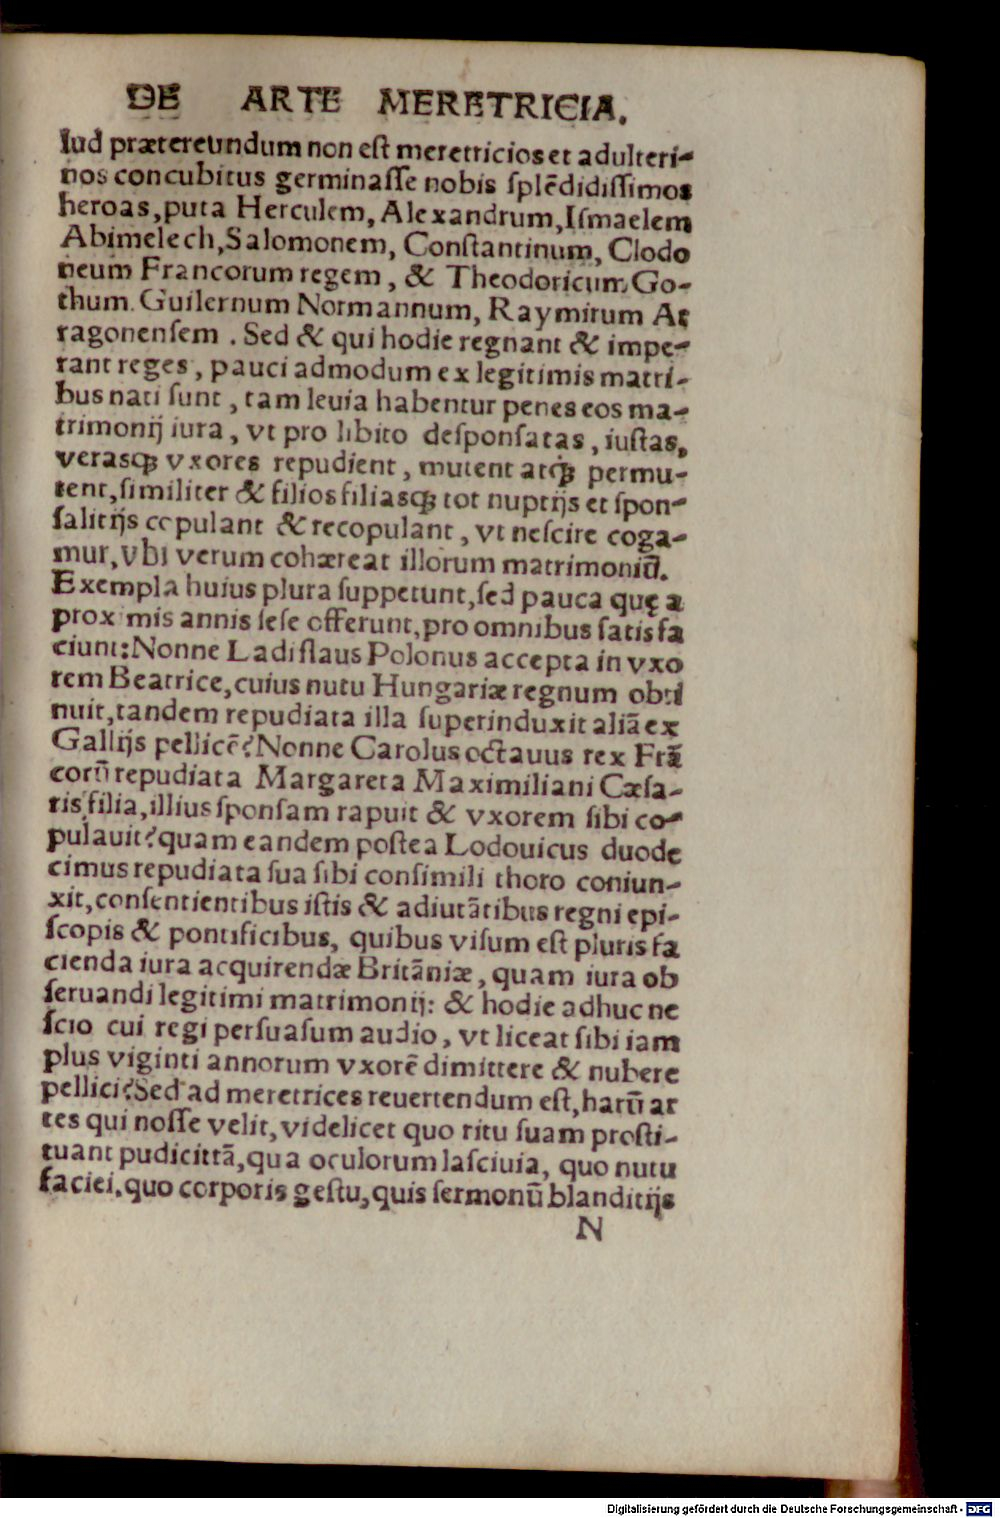 DE ARTE MERETRICIA.
lud prætereundum non est meretricios et adulteri-
nos concubitus germinasse nobis splēdidissimos
heroas, puta Herculem, Alexandrum, Ismaelem
Abimelech, Salomonem, Constantinum, Clodo
neum Francorum regem, & Theodoricum Go-
thum. Guilernum Normannum, Raymirum Ar
ragonensem. Sed & qui hodie regnant & impe-
rant reges, pauci admodum ex legitimis matri-
bus nati sunt, tam leuia habentur penes eos ma-
trimonij iura, vt pro libito desponsatas, iustas,
verasq; vxores repudient, mutent atq; permu-
tent, similiter & filios filiasq; tot nuptijs et spon-
salitijs copulant & recopulant, vt nescire coga-
mur, vbi verum cohæreat illorum matrimoniū.
Exempla huius plura suppetunt, sed pauca quę a
proximis annis sese offerunt, pro omnibus satis fa
ciunt: Nonne Ladislaus Polonus accepta in vxo
rem Beatrice, cuius nutu Hungariæ regnum obti
nuit, tandem repudiata illa superinduxit aliā ex
Gallijs pellicē? Nonne Carolus octauus rex Frā
corū repudiata Margareta Maximiliani Cæsa-
ris filia, illius sponsam rapuit & vxorem sibi co-
pulauit? quam eandem postea Lodouicus duode
cimus repudiata sua sibi consimili thoro coniun-
xit, consentientibus istis & adiutātibus regni epi-
scopis & pontificibus, quibus visum est pluris fa
cienda iura acquirendæ Britāniæ, quam iura ob
seruandi legitimi matrimonij: & hodie adhuc ne
scio cui regi persuasum audio, vt liceat sibi iam
plus viginti annorum vxorē dimittere & nubere
pellici? Sed ad meretrices reuertendum est, harū ar
tes qui nosse velit, videlicet quo ritu suam prosti-
tuant pudicittā, qua oculorum lasciuia, quo nutu
faciei, quo corporis gestu, quis sermonū blanditijs
N
Digitalisierung gefördert durch die Deutsche Forschungsgemeinschaft - DFG